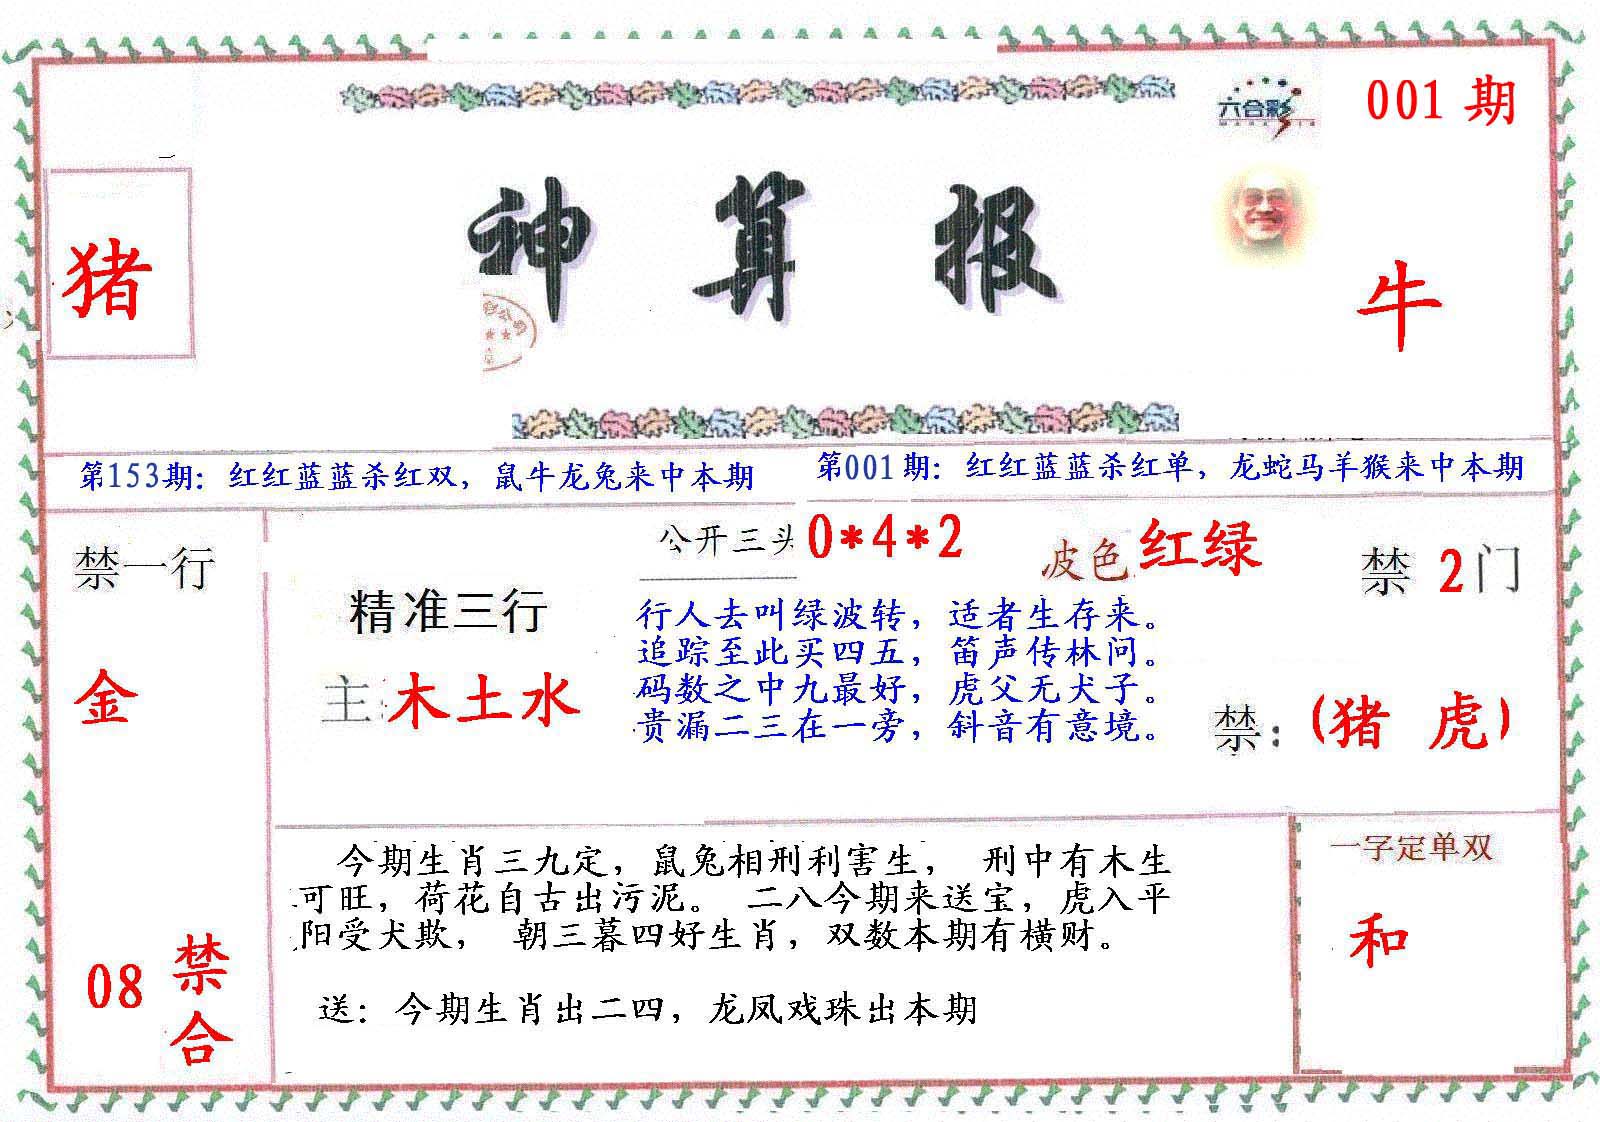 001 期
六合彩
神算报
猪
牛
第153期：红红蓝蓝杀红双，鼠牛龙兔来中本期
第001期：红红蓝蓝杀红单，龙蛇马羊猴来中本期
禁一行
金
08 禁合
精准三行
主:木土水
公开三头 0*4*2
波色 红绿
禁 2 门
行人去叫绿波转，适者生存来。
追踪至此买四五，笛声传林问。
码数之中九最好，虎父无犬子。
贵漏二三在一旁，斜音有意境。
禁：(猪 虎)
今期生肖三九定，鼠兔相刑利害生， 刑中有木生
可旺，荷花自古出污泥。 二八今期来送宝，虎入平
阳受犬欺， 朝三暮四好生肖，双数本期有横财。
送：今期生肖出二四，龙凤戏珠出本期
一字定单双
和